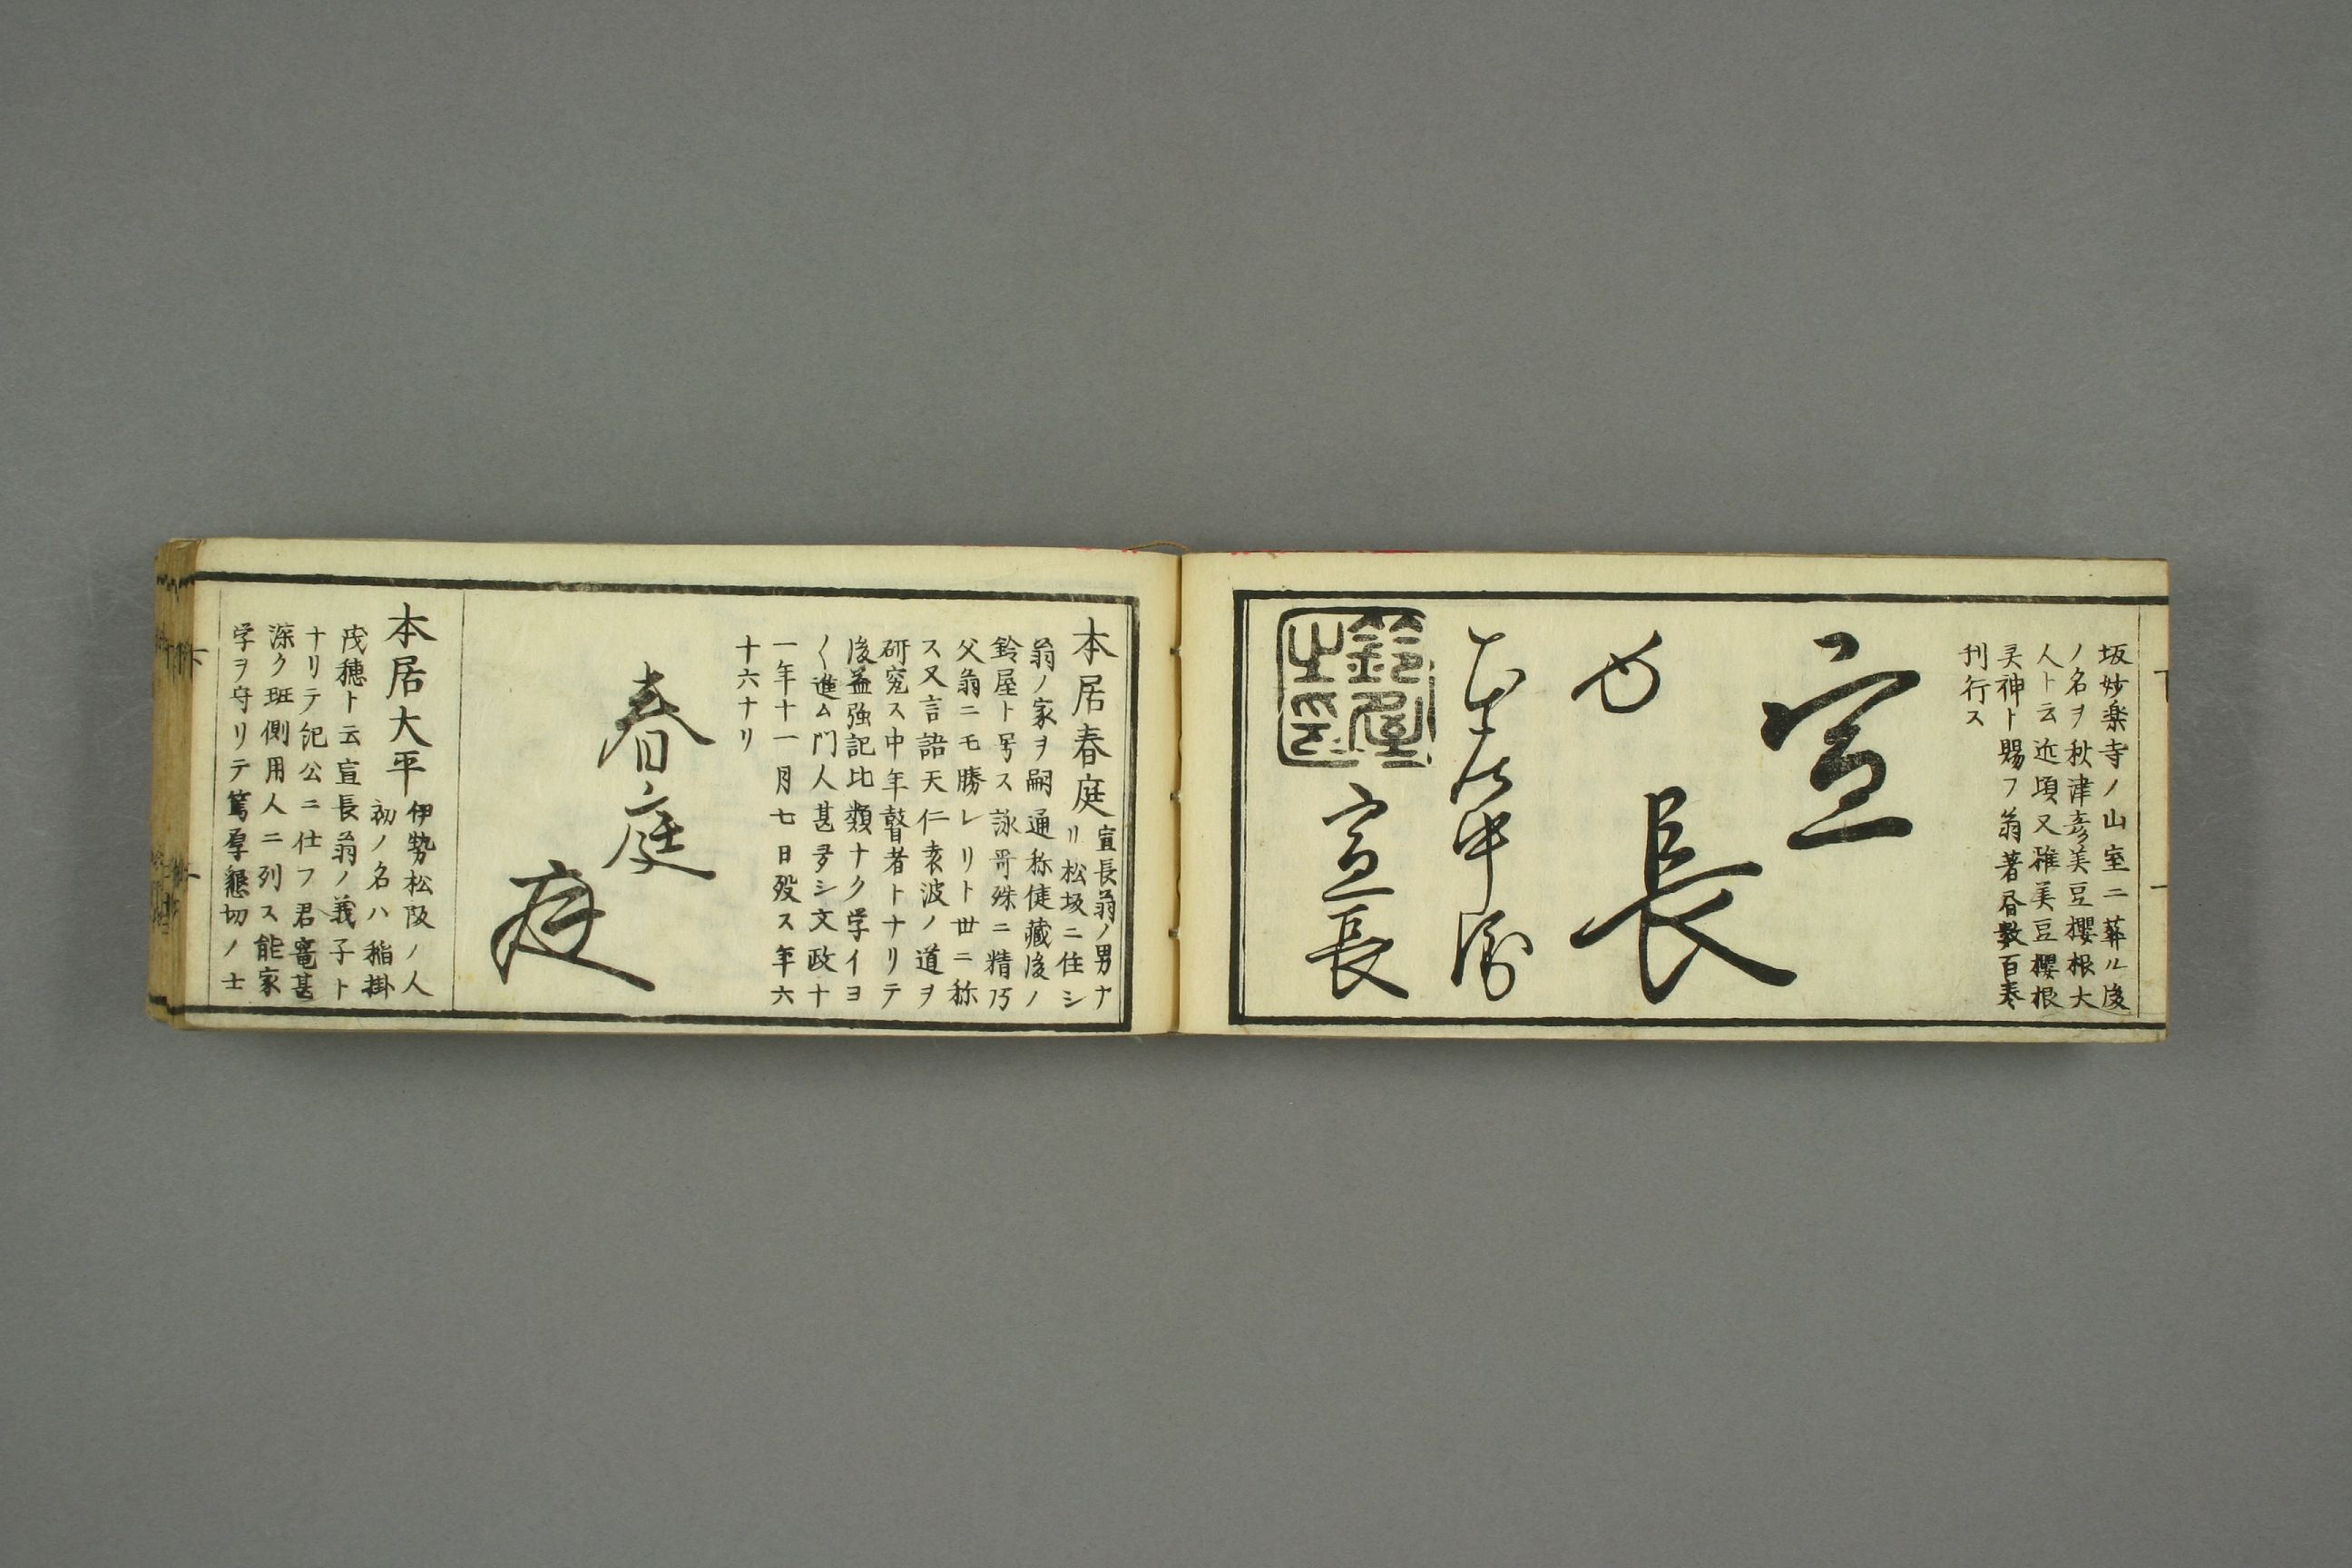 坂妙楽寺ノ山室ニ葬ル後
ノ名ヲ秋津彦美豆櫻根大
人ト云近頃又稚美豆櫻根
灵神ト賜フ翁著昏数百巻
刊行ス
宣
長
本居中衛
宣長
鈴屋
之印
本居春庭
宣長翁ノ男ナ
リ松坂ニ住シ
翁ノ家ヲ嗣通称健藏後ノ
鈴屋ト号ス詠哥殊ニ精巧
父翁ニモ勝レリト世ニ称
ス又言語天仁袁波ノ道ヲ
研究ス中年瞽者トナリテ
後益強記比類ナク学イヨ
〱進ム門人甚多シ文政十
一年十一月七日歿ス年六
十六ナリ
春庭
庭
本居大平
伊勢松阪ノ人
初ノ名ハ稲掛
茂穂ト云宣長翁ノ義子ト
ナリテ紀公ニ仕フ君寵甚
深ク班側用人ニ列ス能家
学ヲ守リテ篤厚懇切ノ士